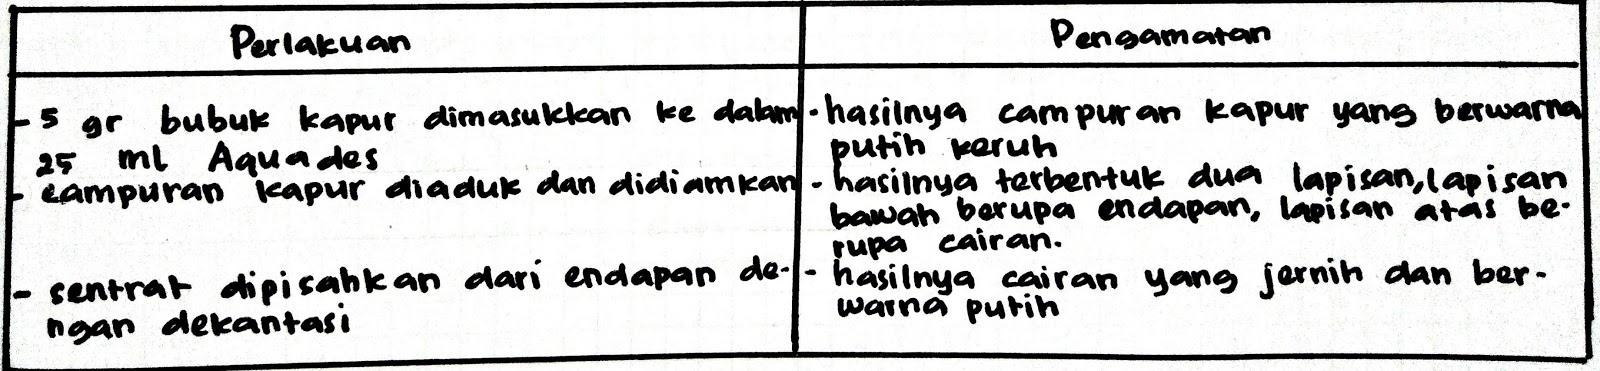 Perlakuan
Pengamatan
- 5 gr bubuk kapur dimasukkan ke dalam
25 ml Aquades
- campuran kapur diaduk dan didiamkan
- sentrat dipisahkan dari endapan de-
ngan dekantasi
- hasilnya campuran kapur yang berwarna
putih keruh
- hasilnya terbentuk dua lapisan, lapisan
bawah berupa endapan, lapisan atas be-
rupa cairan.
- hasilnya cairan yang jernih dan ber-
warna putih